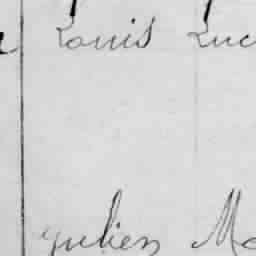 Louis Luc
Julien Ma